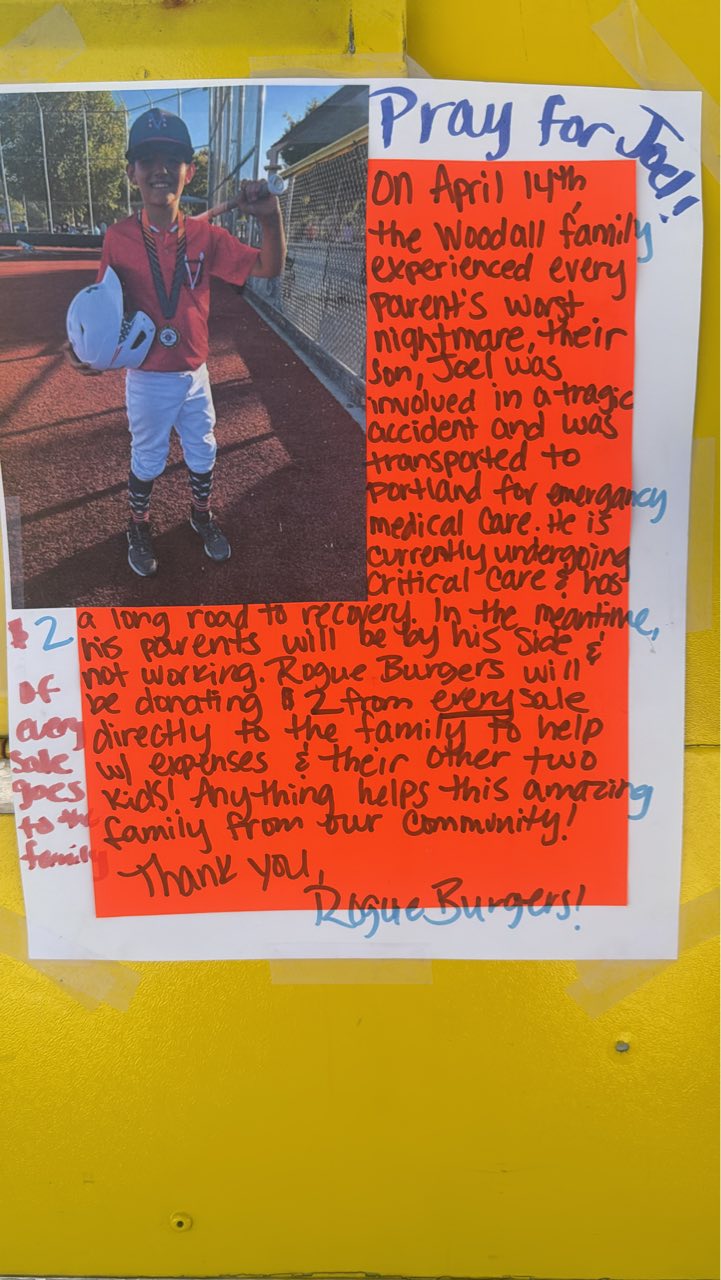 Pray for Joel!
On April 14th,
the Woodall family
experienced every
parent's worst
nightmare, their
son, Joel was
involved in a tragic
accident and was
transported to
Portland for emergancy
medical care. He is
currently undergoing
critical care & has
a long road to recovery. In the meantime,
his parents will be by his side &
not working. Rogue Burgers will
be donating $2 from every sale
directly to the family to help
w/ expenses & their other two
kids! Anything helps this amazing
family from our community!
Thank you,
Rogue Burgers!
$2
of
every
sale
goes
to the
family